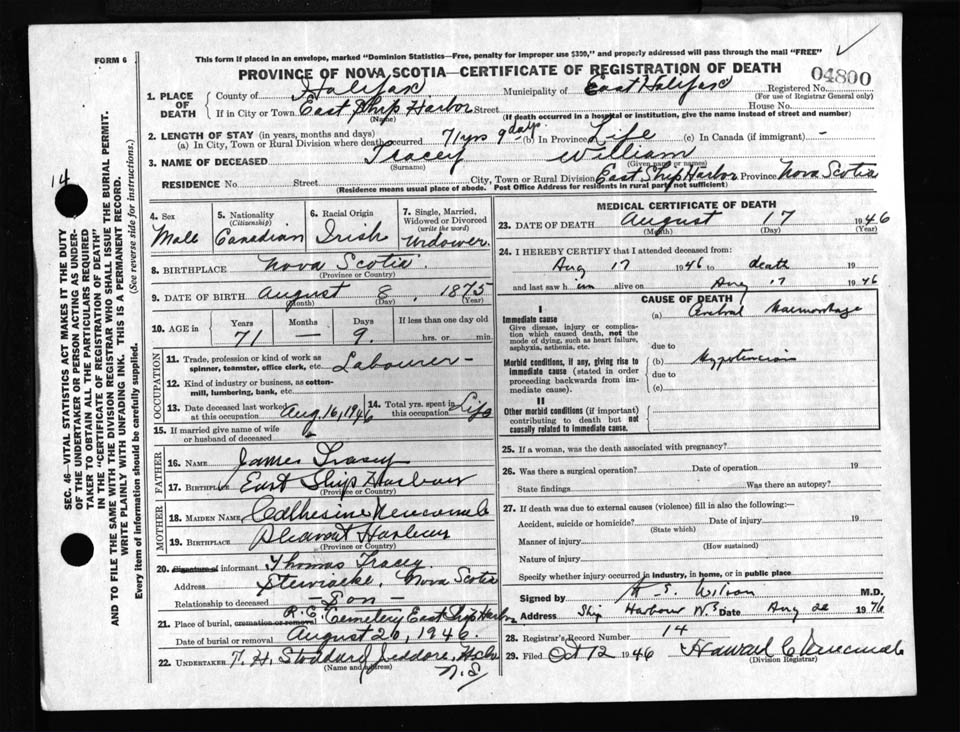 FORM 6
This form if placed in an envelope, marked "Dominion Statistics—Free, penalty for improper use $300," and properly addressed will pass through the mail "FREE"
PROVINCE OF NOVA SCOTIA—CERTIFICATE OF REGISTRATION OF DEATH
04800
1. PLACE OF DEATH
County of Halifax Municipality of East Halifax Registered No.
(For use of Registrar General only)
If in City or Town East Ship Harbor Street House No.
(Name) (If death occurred in a hospital or institution, give the name instead of street and number)
2. LENGTH OF STAY (in years, months and days)
(a) In City, Town or Rural Division where death occurred 71 yrs 9 days. (b) In Province Life (c) In Canada (if immigrant) -
3. NAME OF DECEASED Tracey William
(Surname) (Given name or names)
RESIDENCE No. Street City, Town or Rural Division East Ship Harbor Province Nova Scotia
(Residence means usual place of abode. Post Office Address for residents in rural part not sufficient)
4. Sex Male
5. Nationality (Citizenship) Canadian
6. Racial Origin Irish
7. Single, Married, Widowed or Divorced (write the word) Widower.
8. BIRTHPLACE Nova Scotia.
(Province or Country)
9. DATE OF BIRTH August 8, 1875
(Month) (Day) (Year)
10. AGE in Years Months Days If less than one day old
71 — 9. hrs. or min.
OCCUPATION
11. Trade, profession or kind of work as spinner, teamster, office clerk, etc. Labourer -
12. Kind of industry or business, as cotton-mill, lumbering, bank, etc.
13. Date deceased last worked at this occupation Aug, 16, 1946
14. Total yrs. spent in this occupation Life
15. If married give name of wife or husband of deceased
FATHER
16. NAME James Tracey
17. BIRTHPLACE East Ship Harbour
(Province or Country)
MOTHER
18. MAIDEN NAME Catherine Newcomb
19. BIRTHPLACE Pleasant Harbour
(Province or Country)
20. Signature of informant Thomas Tracey
Address Stewiacke, Nova Scotia
Relationship to deceased — Son —
21. Place of burial, cremation or removal R.C. Cemetery East Ship Harbor
Date of burial or removal August 20, 1946.
22. UNDERTAKER T. H. Stoddard Jeddore, Hx Co N.S
(Name and address)
MEDICAL CERTIFICATE OF DEATH
23. DATE OF DEATH August 17 1946
(Month) (Day) (Year)
24. I HEREBY CERTIFY that I attended deceased from:
Aug 17 1946 to death 19
and last saw him alive on Aug 17 1946
CAUSE OF DEATH
I
Immediate cause (a) Cerebral Haemorrhage
Give disease, injury or complication which caused death, not the mode of dying, such as heart failure, asphyxia, asthenia, etc.
due to
Morbid conditions, if any, giving rise to immediate cause (stated in order proceeding backwards from immediate cause).
(b) Hypertension
due to
(c)
II
Other morbid conditions (if important) contributing to death but not causally related to immediate cause.
25. If a woman, was the death associated with pregnancy?
26. Was there a surgical operation? Date of operation 19
State findings Was there an autopsy?
27. If death was due to external causes (violence) fill in also the following:—
Accident, suicide or homicide? Date of injury 19
(State which)
Manner of injury
(How sustained)
Nature of injury
Specify whether injury occurred in industry, in home, or in public place
Signed by Wilson M.D.
Address Ship Harbour N.S Date Aug 20 1946
28. Registrar's Record Number 14
29. Filed Oct 12 1946 Howard C Newcomb
(Division Registrar)
14
SEC. 46—VITAL STATISTICS ACT MAKES IT THE DUTY
OF THE UNDERTAKER OR PERSON ACTING AS UNDERTAKER TO OBTAIN ALL THE PARTICULARS REQUIRED
IN THE "CERTIFICATE OF REGISTRATION OF DEATH"
AND TO FILE THE SAME WITH THE DIVISION REGISTRAR WHO SHALL ISSUE THE BURIAL PERMIT.
WRITE PLAINLY WITH UNFADING INK. THIS IS A PERMANENT RECORD.
Every item of information should be carefully supplied. (See reverse side for instructions.)